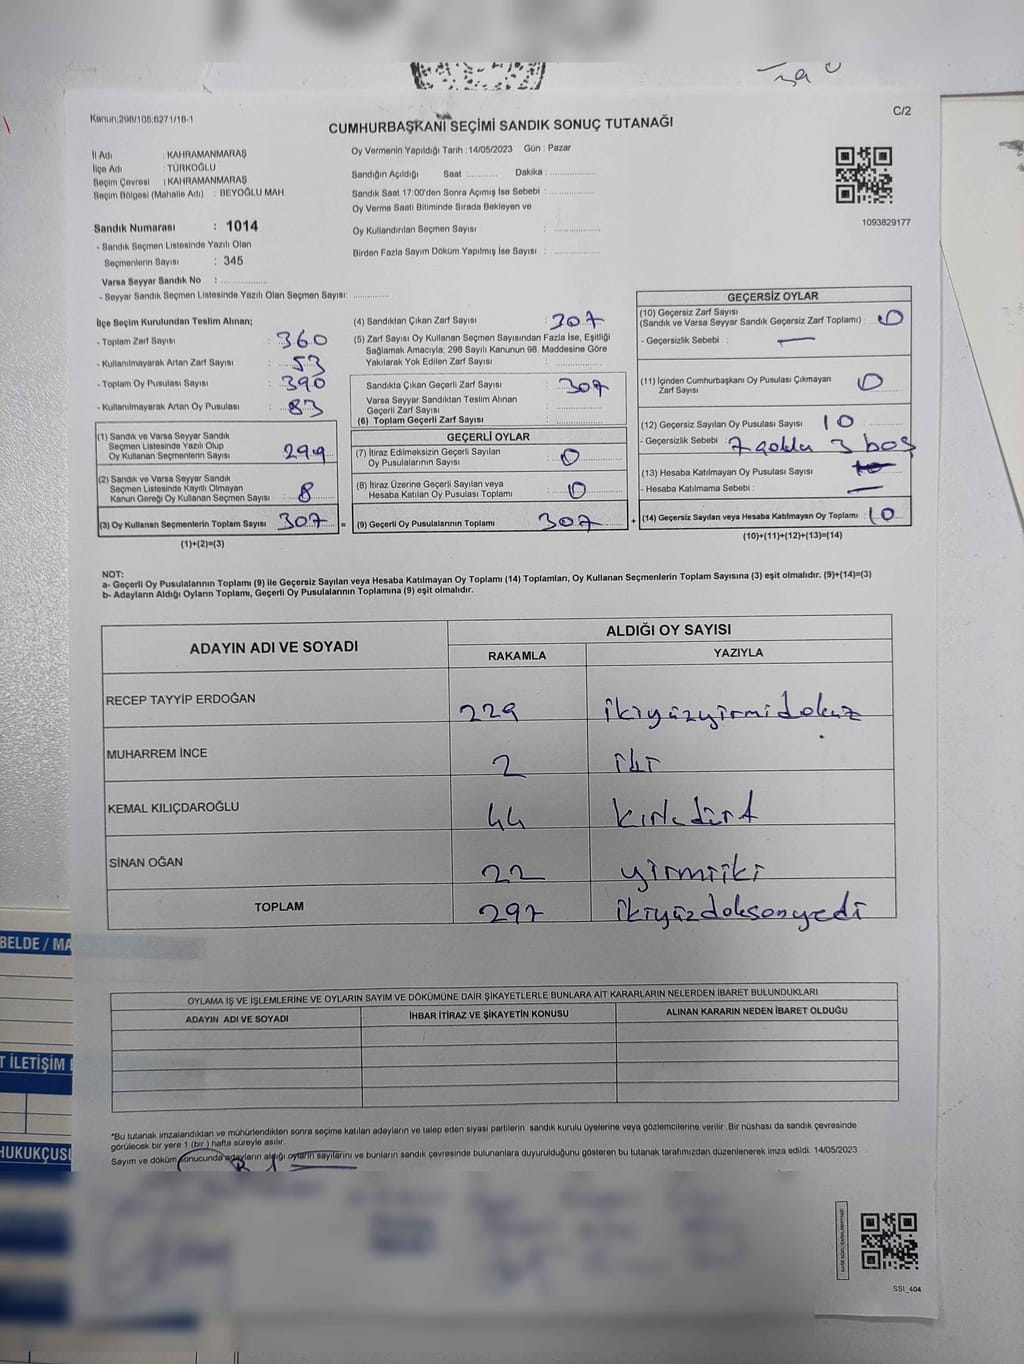 Kanun:298/105;6271/18-1
C/2
CUMHURBAŞKANI SEÇİMİ SANDIK SONUÇ TUTANAĞI
İl Adı : KAHRAMANMARAŞ
İlçe Adı : TÜRKOĞLU
Seçim Çevresi : KAHRAMANMARAŞ
Seçim Bölgesi (Mahalle Adı) : BEYOĞLU MAH.
Sandık Numarası : 1014
- Sandık Seçmen Listesinde Yazılı Olan
Seçmenlerin Sayısı : 345
Varsa Seyyar Sandık No :
- Seyyar Sandık Seçmen Listesinde Yazılı Olan Seçmen Sayısı:
Oy Vermenin Yapıldığı Tarih : 14/05/2023 Gün : Pazar
Sandığın Açıldığı Saat : Dakika :
Sandık Saat 17:00'den Sonra Açımış İse Sebebi :
Oy Verme Saati Bitiminde Sırada Bekleyen ve
Oy Kullandırılan Seçmen Sayısı :
Birden Fazla Sayım Döküm Yapılmış İse Sayısı :
1093829177
İlçe Seçim Kurulundan Teslim Alınan;
- Toplam Zarf Sayısı : 360
- Kullanılmayarak Artan Zarf Sayısı : 53
- Toplam Oy Pusulası Sayısı : 390
- Kullanılmayarak Artan Oy Pusulası : 83
(1) Sandık ve Varsa Seyyar Sandık
Seçmen Listesinde Yazılı Olup
Oy Kullanan Seçmenlerin Sayısı : 299
(2) Sandık ve Varsa Seyyar Sandık
Seçmen Listesinde Kayıtlı Olmayan
Kanun Gereği Oy Kullanan Seçmen Sayısı : 8
(3) Oy Kullanan Seçmenlerin Toplam Sayısı : 307 =
(1)+(2)=(3)
(4) Sandıktan Çıkan Zarf Sayısı : 307
(5) Zarf Sayısı Oy Kullanan Seçmen Sayısından Fazla İse, Eşitliği
Sağlamak Amacıyla; 298 Sayılı Kanunun 98. Maddesine Göre
Yakılarak Yok Edilen Zarf Sayısı :
Sandıkta Çıkan Geçerli Zarf Sayısı : 307
Varsa Seyyar Sandıktan Teslim Alınan
Geçerli Zarf Sayısı :
(6) Toplam Geçerli Zarf Sayısı :
GEÇERLİ OYLAR
(7) İtiraz Edilmeksizin Geçerli Sayılan
Oy Pusulalarının Sayısı : 0
(8) İtiraz Üzerine Geçerli Sayılan veya
Hesaba Katılan Oy Pusulası Toplamı : 0
(9) Geçerli Oy Pusulalarının Toplamı : 307 +
GEÇERSİZ OYLAR
(10) Geçersiz Zarf Sayısı
(Sandık ve Varsa Seyyar Sandık Geçersiz Zarf Toplamı) : 0
- Geçersizlik Sebebi : —
(11) İçinden Cumhurbaşkanı Oy Pusulası Çıkmayan
Zarf Sayısı : 0
(12) Geçersiz Sayılan Oy Pusulası Sayısı : 10
- Geçersizlik Sebebi : 7 çoklu 3 boş
(13) Hesaba Katılmayan Oy Pusulası Sayısı : 10
- Hesaba Katılmama Sebebi : —
(14) Geçersiz Sayılan veya Hesaba Katılmayan Oy Toplamı : 10
(10)+(11)+(12)+(13)=(14)
NOT:
a- Geçerli Oy Pusulalarının Toplamı (9) ile Geçersiz Sayılan veya Hesaba Katılmayan Oy Toplamı (14) Toplamları, Oy Kullanan Seçmenlerin Toplam Sayısına (3) eşit olmalıdır. (9)+(14)=(3)
b- Adayların Aldığı Oyların Toplamı, Geçerli Oy Pusulalarının Toplamına (9) eşit olmalıdır.
ADAYIN ADI VE SOYADI
ALDIĞI OY SAYISI
RAKAMLA YAZIYLA
RECEP TAYYİP ERDOĞAN 229 ikiyüzyirmidokuz
MUHARREM İNCE 2 iki
KEMAL KILIÇDAROĞLU 44 kırkdört
SİNAN OĞAN 22 yirmiiki
TOPLAM 297 ikiyüzdoksanyedi
OYLAMA İŞ VE İŞLEMLERİNE VE OYLARIN SAYIM VE DÖKÜMÜNE DAİR ŞİKAYETLERLE BUNLARA AİT KARARLARIN NELERDEN İBARET BULUNDUKLARI
ADAYIN ADI VE SOYADI İHBAR İTİRAZ VE ŞİKAYETİN KONUSU ALINAN KARARIN NEDEN İBARET OLDUĞU
*Bu tutanak imzalandıktan ve mühürlendikten sonra seçime katılan adayların ve talep eden siyasi partilerin sandık kurulu üyelerine veya gözlemcilerine verilir. Bir nüshası da sandık çevresinde
görülecek bir yere 1 (bir) hafta süreyle asılır.
Sayım ve döküm sonucunda adayların aldığı oyların sayılarını ve bunların sandık çevresinde bulunanlara duyurulduğunu gösteren bu tutanak tarafımızdan düzenlenerek imza edildi. 14/05/2023
SSI_404
BELDE / MA
T İLETİŞİM
HUKUKÇUSU